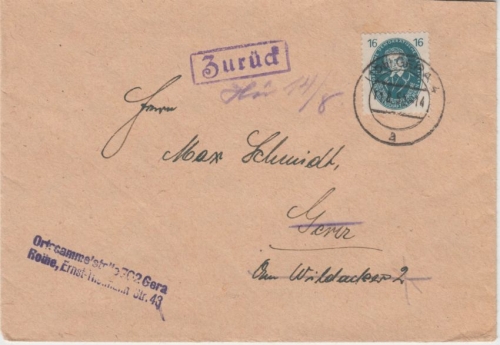 16 16
Zurück
14/8.
Herrn
Max Schmidt,
Gera
Am Wildacker 2
Ortssammelstelle 702 Gera
Rothe, Ernst-Thälmann-Str. 43
a